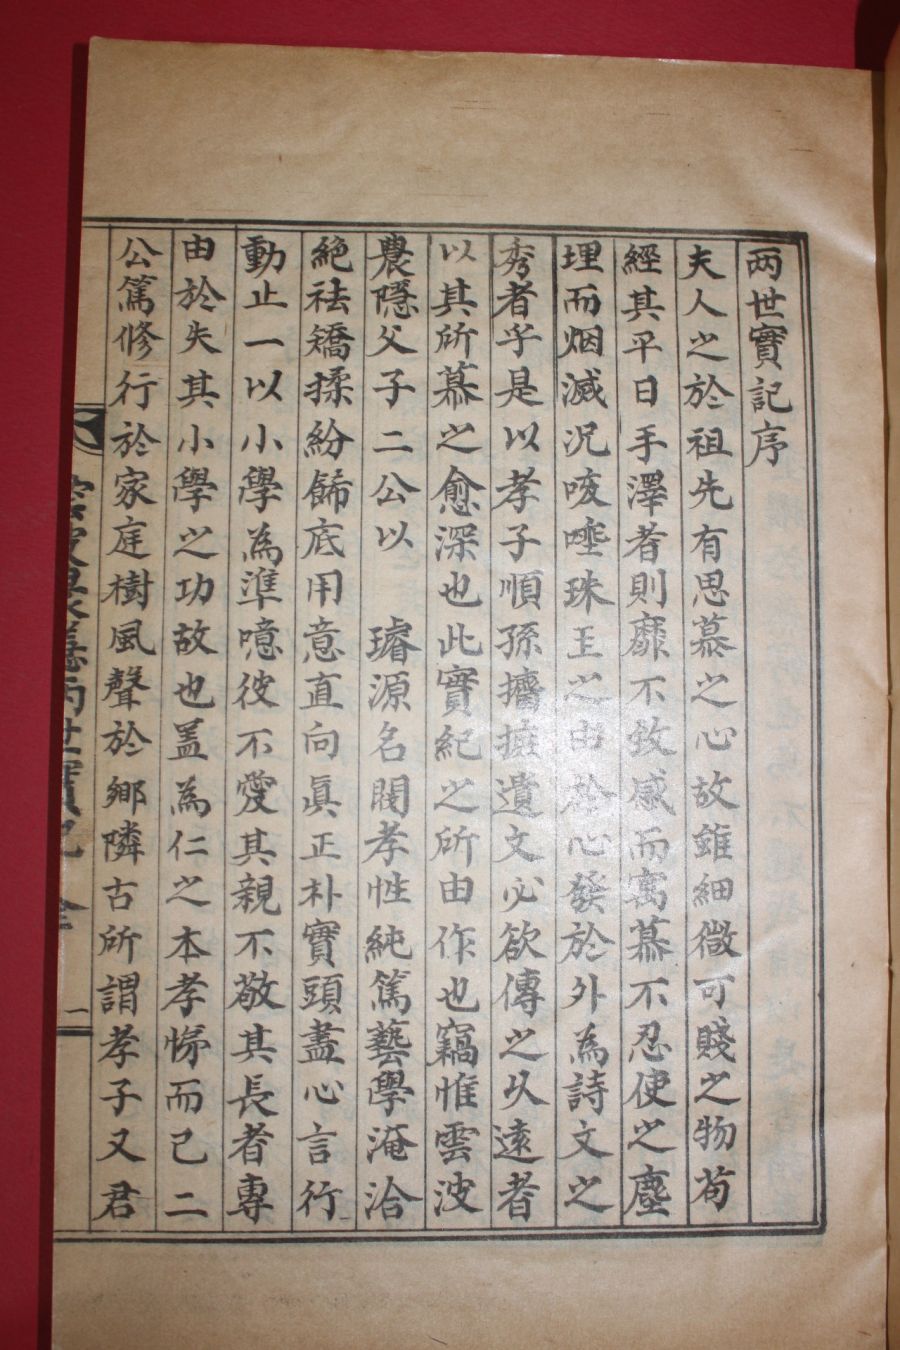 两世實記序
夫人之於祖先有思慕之心故雖細微可賤之物苟
經其平日手澤者則靡不致感而寓慕不忍使之塵
埋而烟滅况咳唾珠玉之由於心發於外為詩文之
秀者乎是以孝子順孫攟摭遺文必欲傳之以遠者
以其所慕之愈深也此實紀之所由作也竊惟雲波
農隱父子二公以 璿源名閥孝性純篤藝學淹洽
絶祛矯揉紛餙底用意直向眞正朴實頭盡心言行
動止一以小學為準噫彼不愛其親不敬其長者專
由於失其小學之功故也盖為仁之本孝悌而已二
公篤修行於家庭樹風聲於鄉隣古所謂孝子又君
兩世實記 全
一